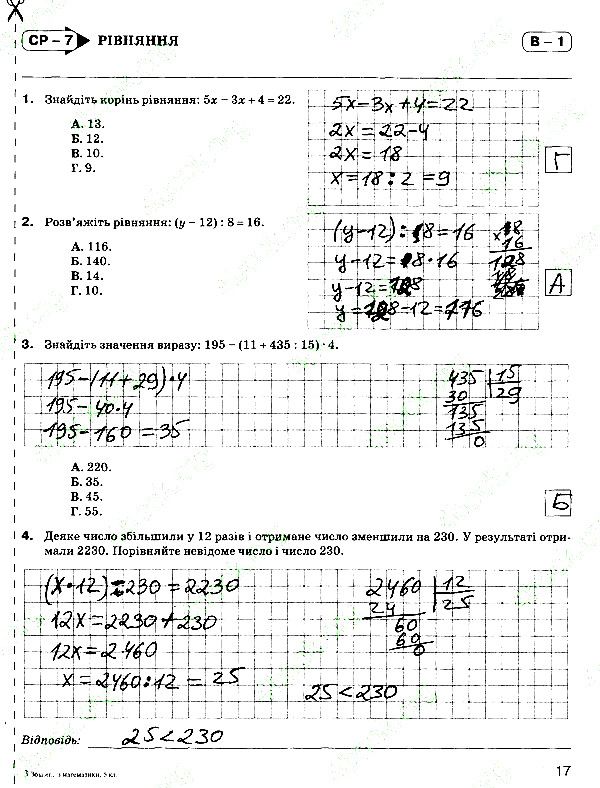 СР – 7 РІВНЯННЯ В – 1
1. Знайдіть корінь рівняння: 5x – 3x + 4 = 22.
А. 13.
Б. 12.
В. 10.
Г. 9.
5x – 3x + 4 = 22
2x = 22 – 4
2x = 18
x = 18 : 2 = 9
Г
2. Розв'яжіть рівняння: (y – 12) : 8 = 16.
А. 116.
Б. 140.
В. 14.
Г. 10.
(y – 12) : 8 = 16
y – 12 = 8 · 16
y – 12 = 128
y = 128 – 12 = 116
16
128
А
3. Знайдіть значення виразу: 195 – (11 + 435 : 15) · 4.
195 – (11 + 29) · 4
195 – 40·4
195 – 160 = 35
435 15
30 29
135
135
0
А. 220.
Б. 35.
В. 45.
Г. 55.
Б
4. Деяке число збільшили у 12 разів і отримане число зменшили на 230. У результаті отри-
мали 2230. Порівняйте невідоме число і число 230.
(x · 12) – 230 = 2230
12x = 2230 + 230
12x = 2460
x = 2460 : 12 = 25
2460 12
24 25
60
60
0
25 < 230
Відповідь: 25 < 230
17